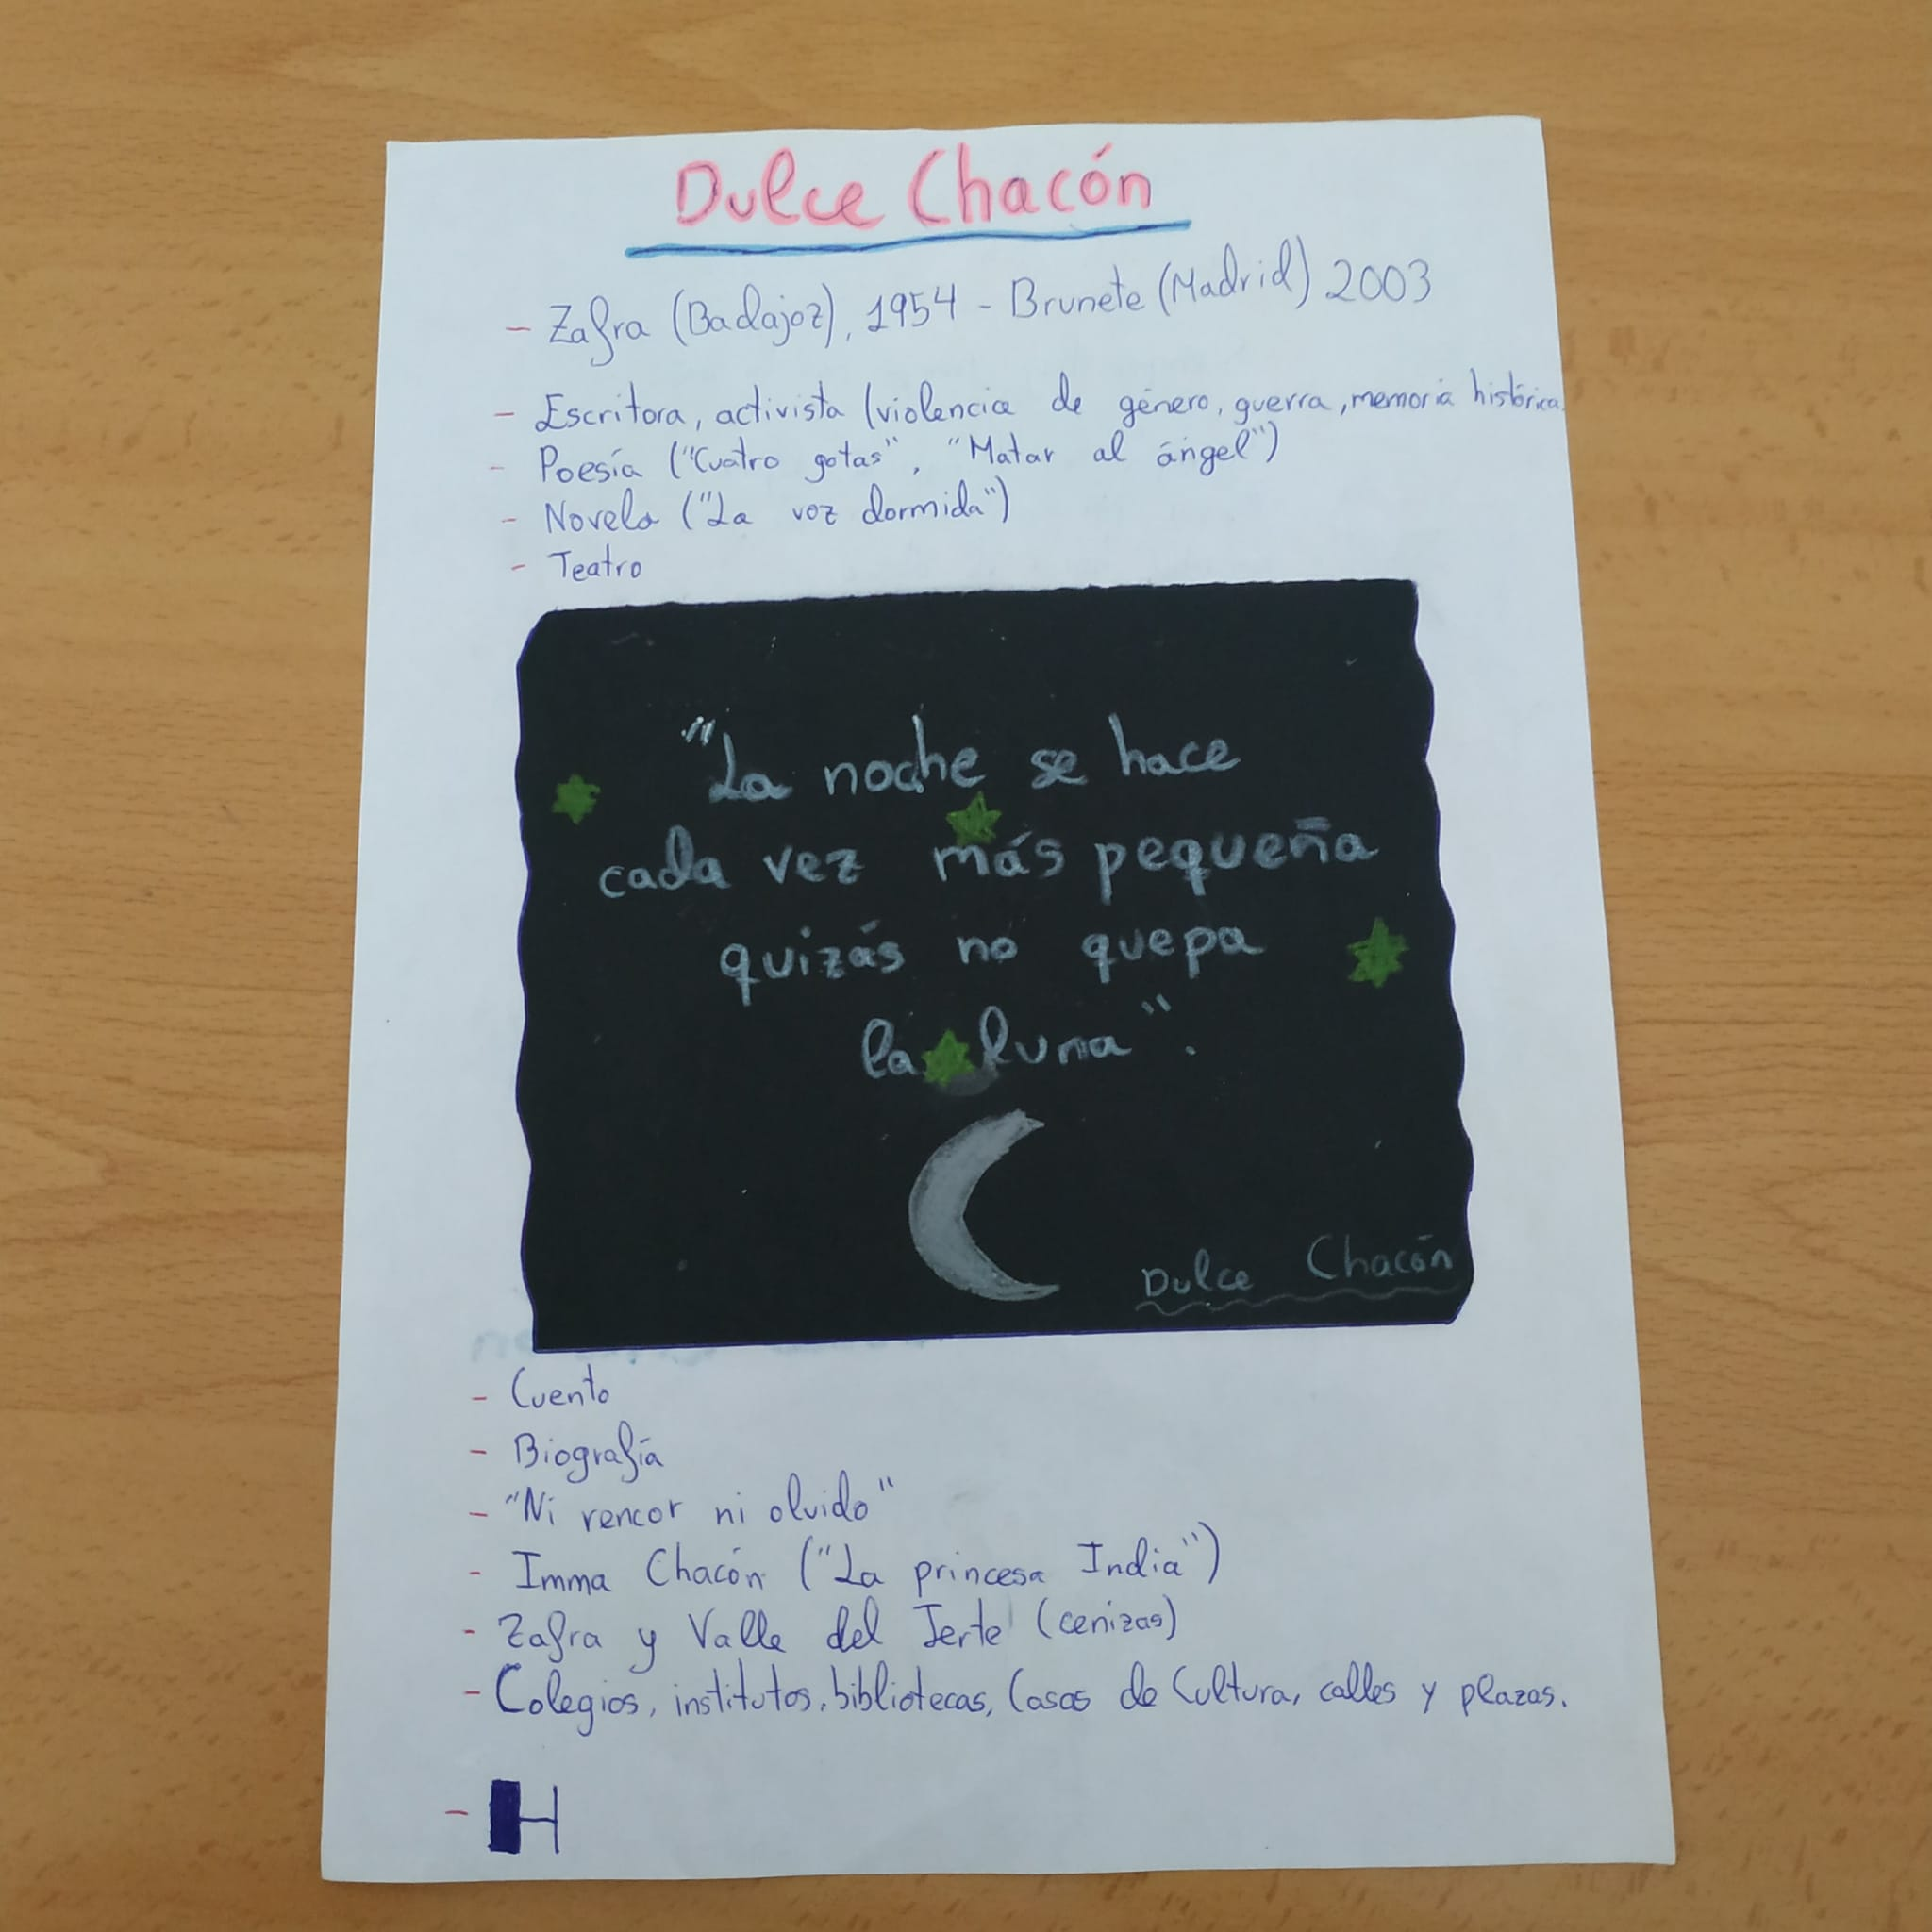 Dulce Chacón
- Zafra (Badajoz), 1954 - Brunete (Madrid) 2003
- Escritora, activista (violencia de género, guerra, memoria histórica
- Poesía ("Cuatro gotas", "Matar al ángel")
- Novela ("La voz dormida")
- Teatro
"La noche se hace
cada vez más pequeña
quizás no quepa
la luna".
Dulce Chacón
- Cuento
- Biografía
- "Ni rencor ni olvido"
- Imma Chacón ("La princesa India")
- Zafra y Valle del Jerte (cenizas)
- Colegios, institutos, bibliotecas, Casas de Cultura, calles y plazas.
- H